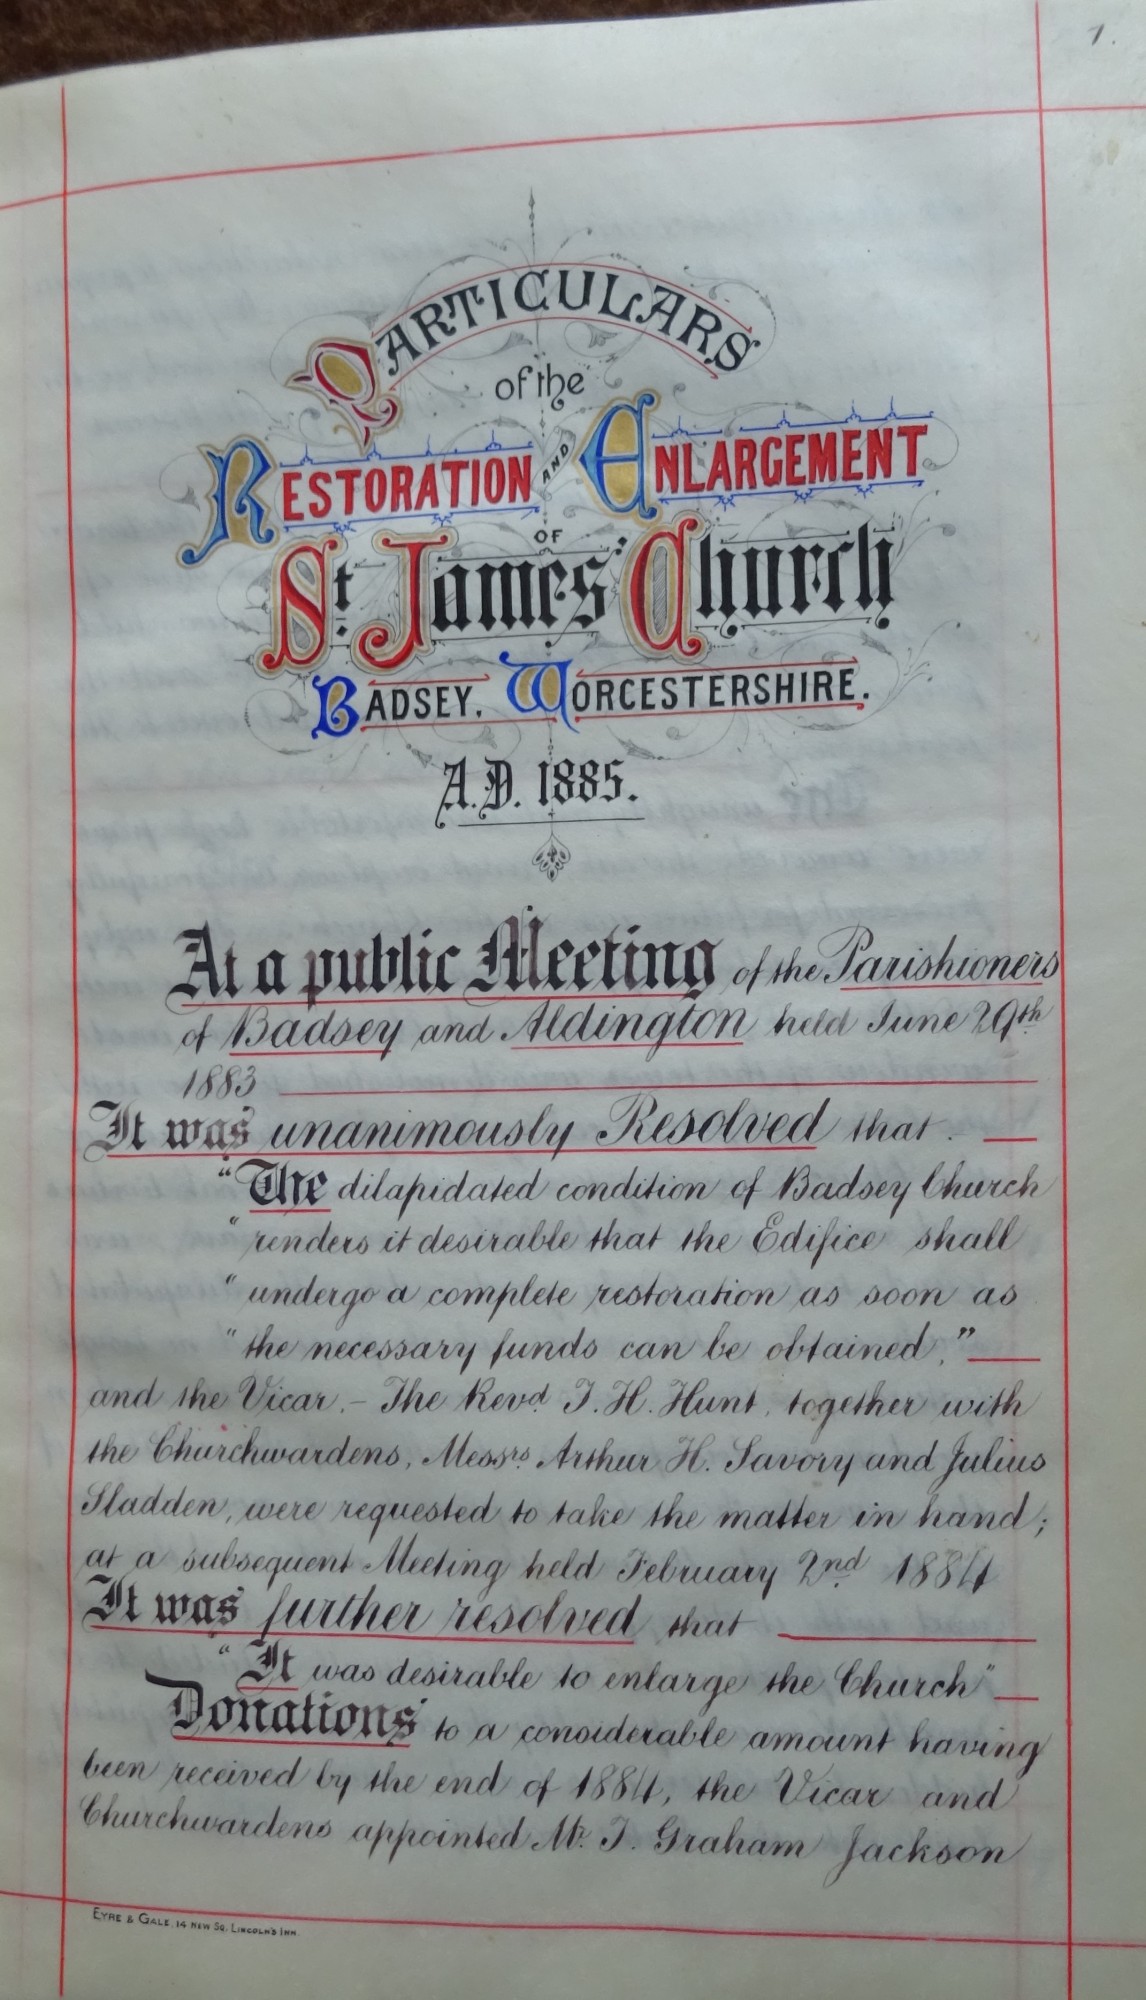 1.
PARTICULARS
of the
RESTORATION AND ENLARGEMENT
OF
St. James' Church
BADSEY, WORCESTERSHIRE.
A.D. 1885.
At a public Meeting of the Parishioners
of Badsey and Aldington held June 29th
1883
It was unanimously Resolved that
"The dilapidated condition of Badsey Church
"renders it desirable that the Edifice shall
"undergo a complete restoration as soon as
"the necessary funds can be obtained."
and the Vicar, – The Revd. T. H. Hunt, together with
the Churchwardens, Messrs Arthur H. Savory and Julius
Sladden, were requested to take the matter in hand;
at a subsequent Meeting held February 2nd 1884
It was further resolved that
"It was desirable to enlarge the Church"
Donations to a considerable amount having
been received by the end of 1884, the Vicar and
Churchwardens appointed Mr. T. Graham Jackson
EYRE & GALE, 14 NEW SQ. LINCOLN'S INN.